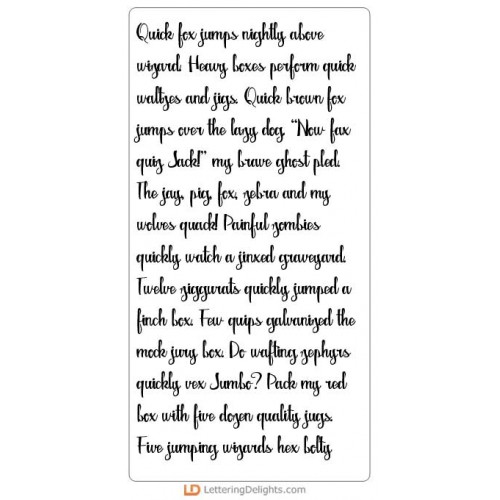 Quick fox jumps nightly above
wizard. Heavy boxes perform quick
waltzes and jigs. Quick brown fox
jumps over the lazy dog. “Now fax
quiz Jack!” my brave ghost pled.
The jay, pig, fox, zebra and my
wolves quack! Painful zombies
quickly watch a jinxed graveyard.
Twelve ziggurats quickly jumped a
finch box. Few quips galvanized the
mock jury box. Do wafting zephyrs
quickly vex Jumbo? Pack my red
box with five dozen quality jugs.
Five jumping wizards hex bolty
LD LetteringDelights.com